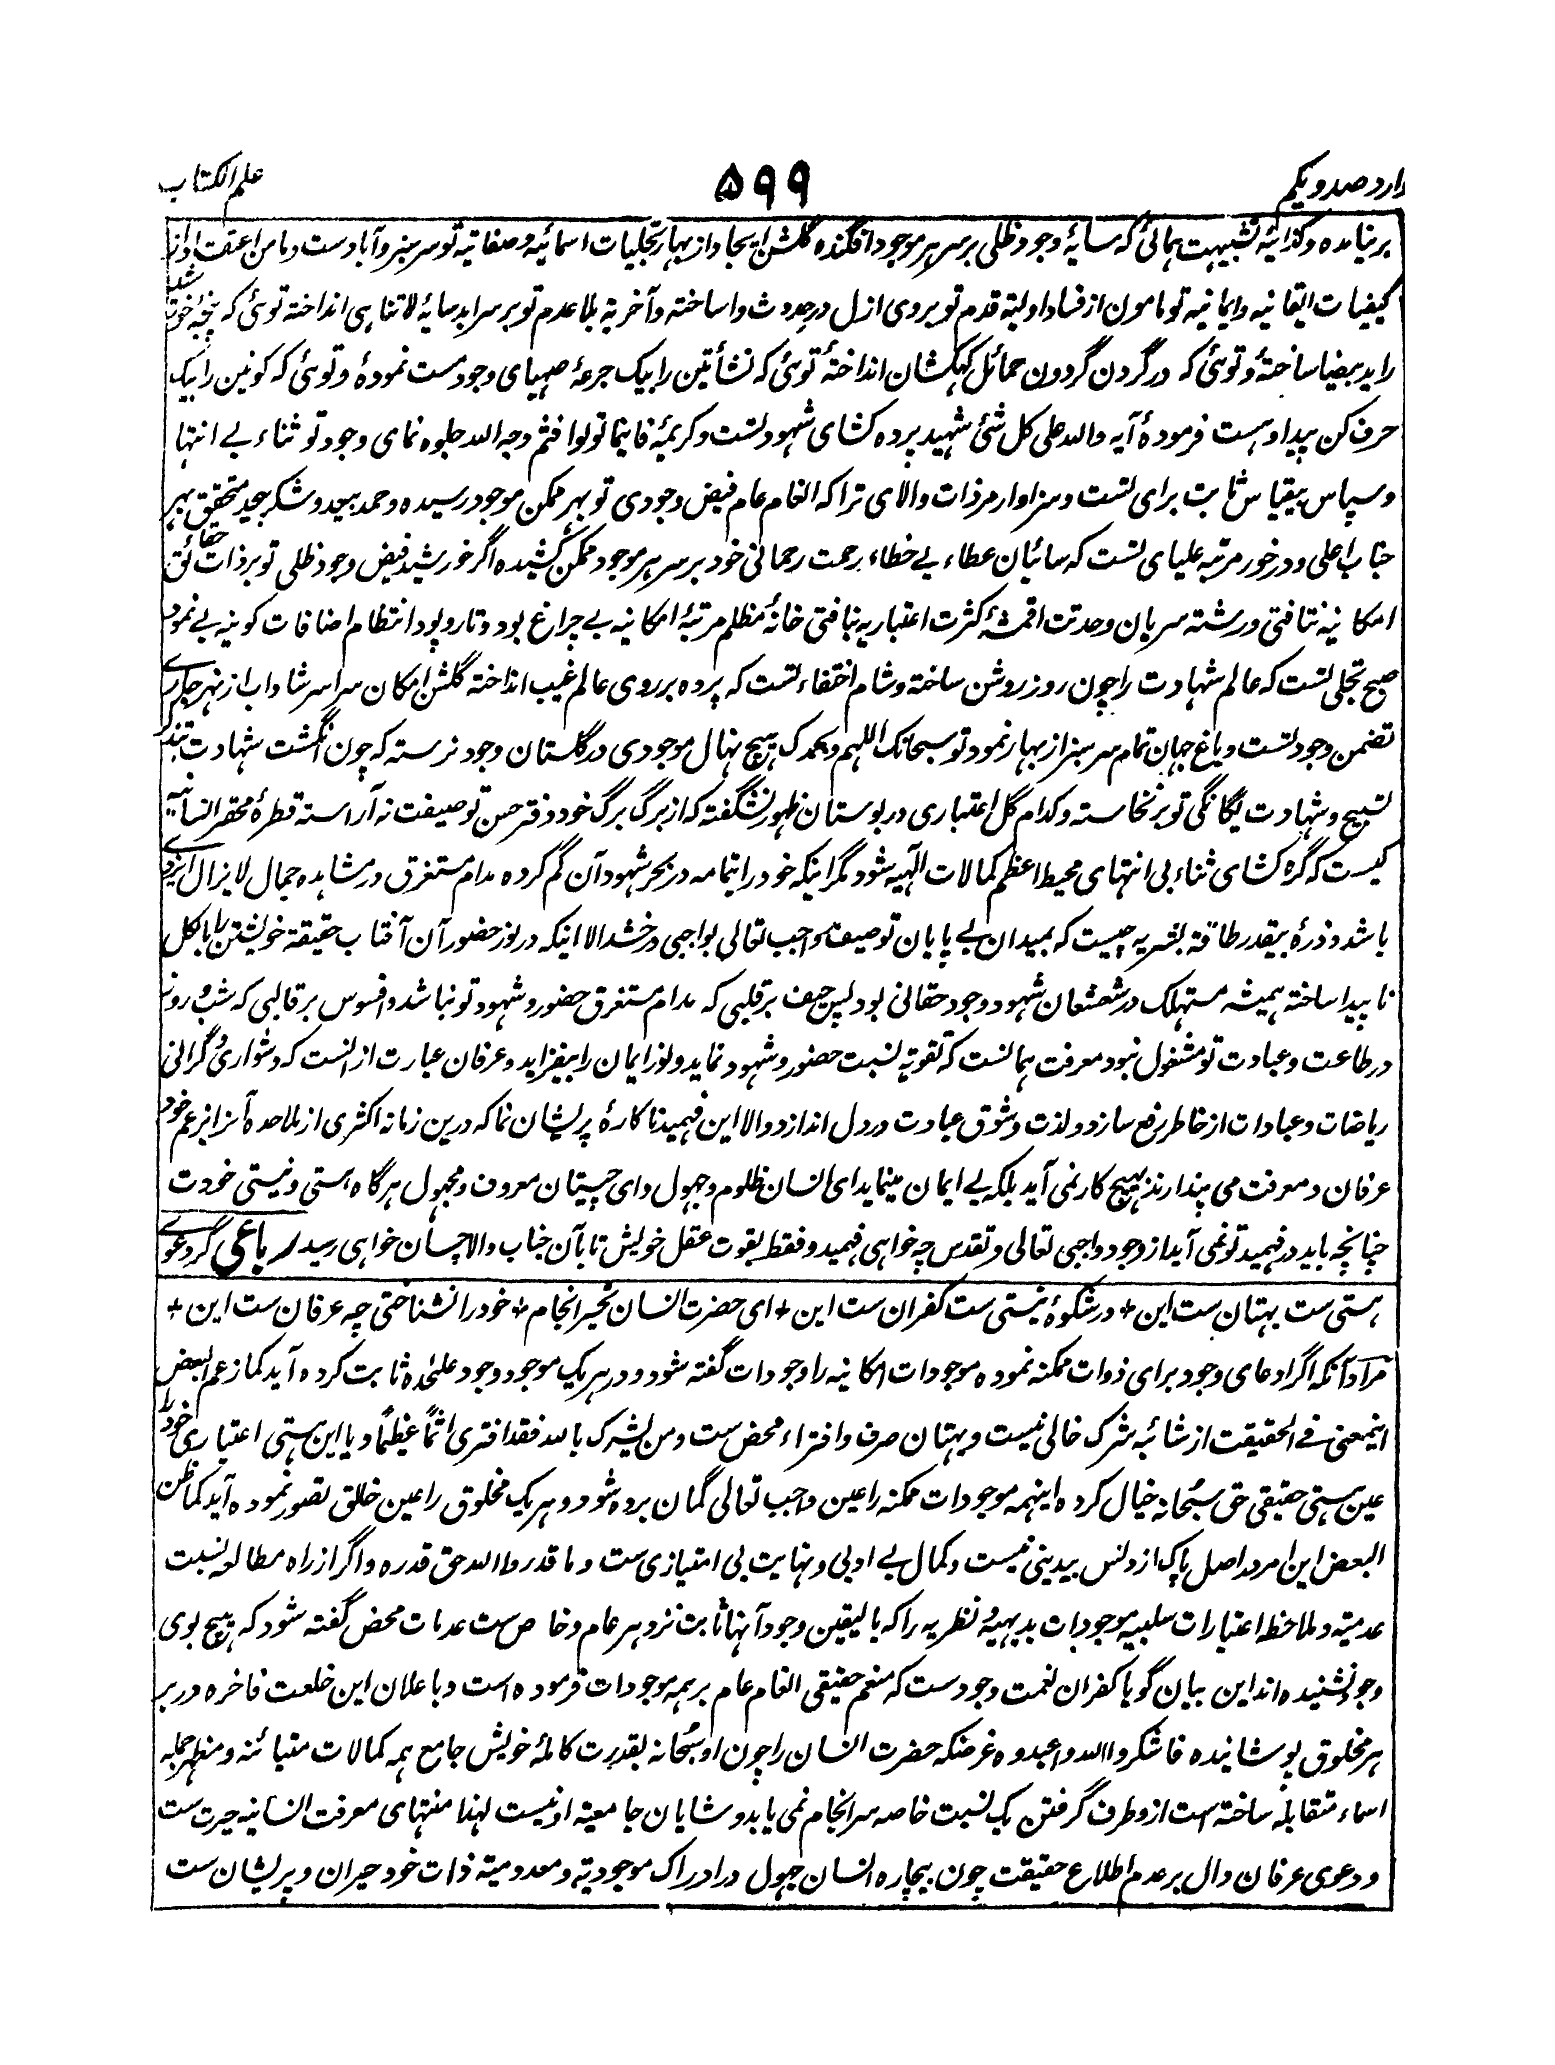 وارد صد و یکم ۵۹۹ علم الکتاب
بر نیامده و کذائیۀ تشبیهت همائی که سایۀ وجود ظلی بر سر هر موجود افگنده گلشن ایجاد از بهار تجلیات اسمائیه و صفاتیه تو سرسبز و آبادست و مامن اعتقاد از
کیفیات ایقانیه و ایمانیه تو مامون از فساد اولیة قدم تو بروی ازل در حدوث وا ساخته و آخریة بلا عدم تو بر سر ابد سایۀ لاتناهی انداخته توئی که پنجۀ خورشید
را ید بیضا ساختۀ و توئی که در گردن گردون حمائل کهکشان انداختۀ توئی که نشأتین را بیک جرعۀ صهبای وجود مست نمودۀ و توئی که کونین را بیک
حرف کن پیدا و هست فرمودۀ آیه والله علی کل شئ شهید پرده کشای شهود تست و کریمۀ فاینما تولوا فثم وجه الله جلوه نمای وجود تو ثناء بے انتها
و سپاس بیقیاس ثابت برای تست و سزاوار مر ذات والای ترا که انعام عام فیض وجودی تو بهر ممکن موجود رسیده و حمد بیعد و شکر بیحد متحقق بهر
جناب اعلی و در خور مرتبه علیای تست که سائبان عطاء بے خطاء رحمت رحمانی خود بر سر هر موجود ممکن کشیده اگر خورشید فیض وجود ظلی تو بر ذات حقائق
امکانیه نتافتی و رشته سریان وحدتت اقمشۀ کثرت اعتباریه نبافتی خانۀ مظلم مرتبۀ امکانیه بے چراغ بود و تار و پود انتظام اضافات کونیه بے نمود
صبح تجلی تست که عالم شهادت را چون روز روشن ساخته و شام اختفاء تست که پرده بر روی عالم غیب انداخته گلشن امکان سراسر شاداب از نهر
تضمن وجود تست و باغ جهان تمام سرسبز از بهار نمود تو سبحانک اللهم و بحمدک هیچ نهال موجودی در گلستان وجود نرسته که چون انگشت شهادت
تسبیح و شهادت یگانگی تو بر نخاسته و کدام گل اعتباری در بوستان ظهور نشگفته که از برگ برگ خود دفتر حسن توصیفت نه آراسته قطرۀ محقر انسانیه
کیست که گره کشای ثناء بی انتهای محیط اعظم کمالات الٰهیه شود مگر اینکه خود را بتمامه در بحر شهود آن گم کرده مدام مستغرق در مشاهده جمال لایزال ایزدی
باشد و ذرۀ بیقدر طاقة بشریه چیست که بمیدان بے پایان توصیف واجب تعالی بواجبی درخشد الا اینکه در نور حضور آن آفتاب حقیقة خویشتن را بالکل
ناپیدا ساخته همیشه مستهلک در شعشعان شهود وجود حقانی بود پس حیف بر قلبی که مدام مستغرق حضور و شهود تو نباشد و افسوس بر قالبی که شب و روز
در طاعت و عبادت تو مشغول نبود معرفت همانست که تقویة نسبت حضور و شهود نماید و نور ایمان را بیفزاید و عرفان عبارت از انست که دشواری و گرانی
ریاضات و عبادات از خاطر رفع سازد و لذت و شوق عبادت در دل اندازد والا این فهمید ناکارۀ پریشان نما که درین زمانه اکثری از ملاحده آنرا بزعم خود
عرفان و معرفت می پندارند بهیچ کار نمی آید بلکه بے ایمان مینماید ای انسان ظلوم و جهول و ای چیستان معروف و مجهول هرگاه هستی و نیستی خودت
چنانچه باید در فهمید تو نمی آید از وجود واجبی تعالی و تقدس چه خواهی فهمید و فقط بقوت عقل خویش تا بآن جناب والا چسان خواهی رسید رباعی گر دعوے
هستی ست بهتان ست این + در شکوۀ نیستی ست کفران ست این + ای حضرت انسان تحیر انجام + خود را نشناختی چه عرفان ست این +
مراد آنکه اگر ادعای وجود برای ذوات ممکنه نموده موجودات امکانیه را وجودات گفته شود و در هر یک موجود وجود علٰحده ثابت کرده آید کما زعم البعض
اینمعنی فے الحقیقت از شائبه شرک خالی نیست و بهتان صرف و افتراء محض ست و من یشرک بالله فقد افتری اثماً عظیماً و یا این هستی اعتباری خود را
عین هستی حقیقی حق سبحانه خیال کرده اینهمه موجودات ممکنه را عین واجب تعالی گمان برده شود و هر یک مخلوق را عین خالق تصور نموده آید کما ظن
البعض این امر در اصل پاک از دنس بیدینی نیست و کمال بے ادبی و نهایت بی امتیازی ست و ما قدروا الله حق قدره و اگر از راه مطالعه نسبت
عدمیة و ملاحظه اعتبارات سلبیه موجودات بدیهیه و نظریه را که بالیقین وجود آنها ثابت نزد هر عام و خاص ست عدمات محض گفته شود که هیچ بوی
وجود نشنیده اند این بیان گویا کفران نعمت وجود ست که منعم حقیقی انعام عام بر همه موجودات فرموده است و باعلان این خلعت فاخره در بر
هر مخلوق پوشانیده فاشکروا الله واعبدوه غرضکه حضرت انسان را چون او سبحانه بقدرت کاملۀ خویش جامع همه کمالات متبائنه و مظهر جمله
اسماء متقابله ساخته ست ازو طرف گرفتن یک نسبت خاصه سرانجام نمی یابد و شایان جامعیة او نیست لهذا منتهای معرفت انسانیه حیرت ست
و دعوی عرفان دال بر عدم اطلاع حقیقت چون بیچاره انسان جهول در ادراک موجودیة و معدومیة ذات خود حیران و پریشان ست